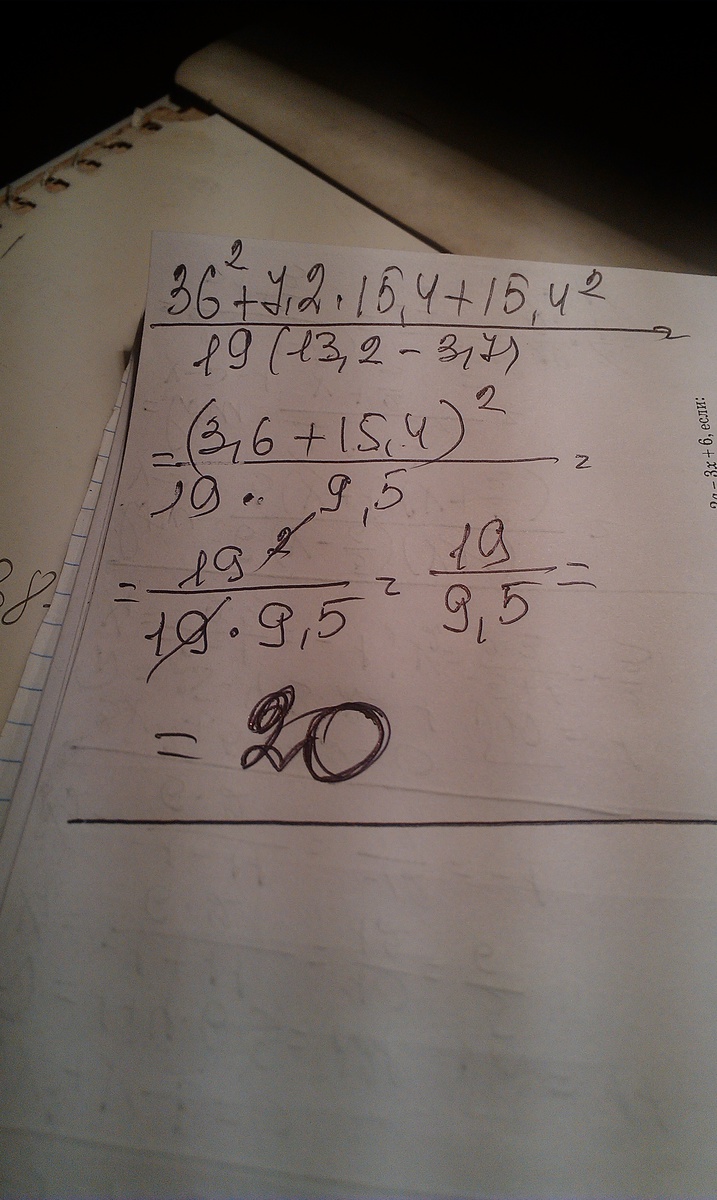 36² + 7,2 · 15,4 + 15,4² =
19 (13,2 - 3,7)
= (3,6 + 15,4)² =
19 · 9,5
= 19² = 19 =
19 · 9,5 9,5
= 20
8.
3x + 6, если: